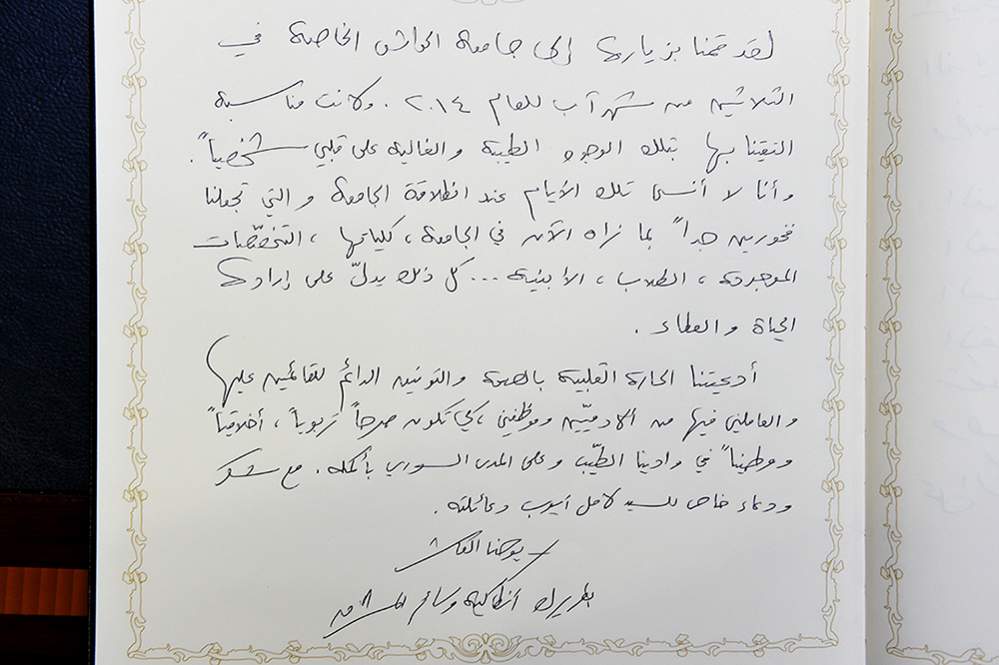 لقد قمنا بزيارة إلى جامعة الحواش الخاصة في
الثلاثين من شهر آب للعام ٢٠١٤. وكانت مناسبة
التقينا بها بتلك الوجوه الطيبة والغالية على قلبي شخصياً.
وأنا لا أنسى تلك الأيام عند انطلاقة الجامعة والتي تجعلنا
فخورين جداً بما نراه الآن في الجامعة، كلياتها، التخصّصات
الموجودة، الطلاب، الأبنية... كل ذلك يدلّ على إرادة
الحياة والعطاء.
أدعيتنا الحارة القلبية بالصحة والتوفيق الدائم للقائمين عليها
والعاملين فيها من أكادميّين وموظفين، كي تكون صرحاً تربوياً، أخلاقياً
ووطنياً في وادينا الطيّب وعلى المدى السوري بأكمله. مع شكر
ودعاء خاص للسيد كامل أيوب وعائلته.
يوحنا العاشر
بطريرك أنطاكية وسائر المشرق